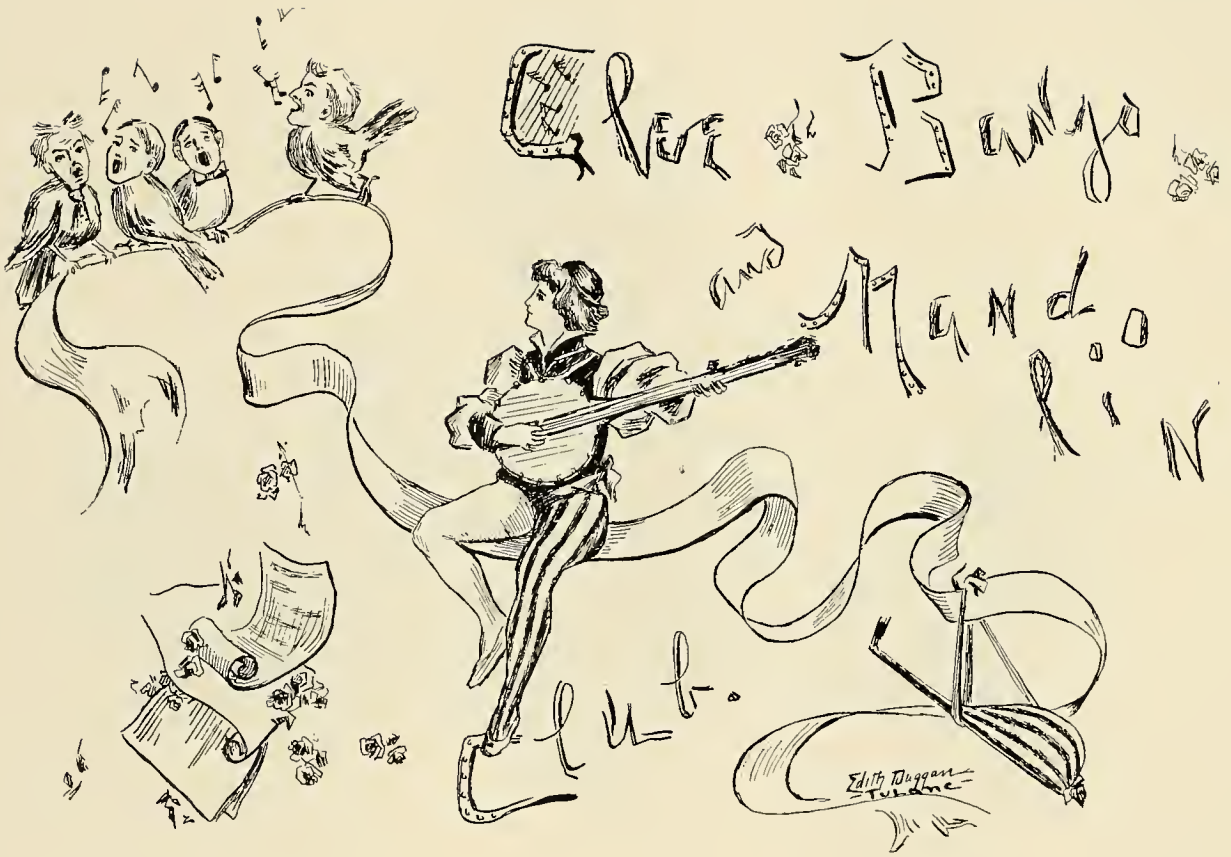 Glee Banjo
and Mandolin
Club.
Edith Duggan
Tulane